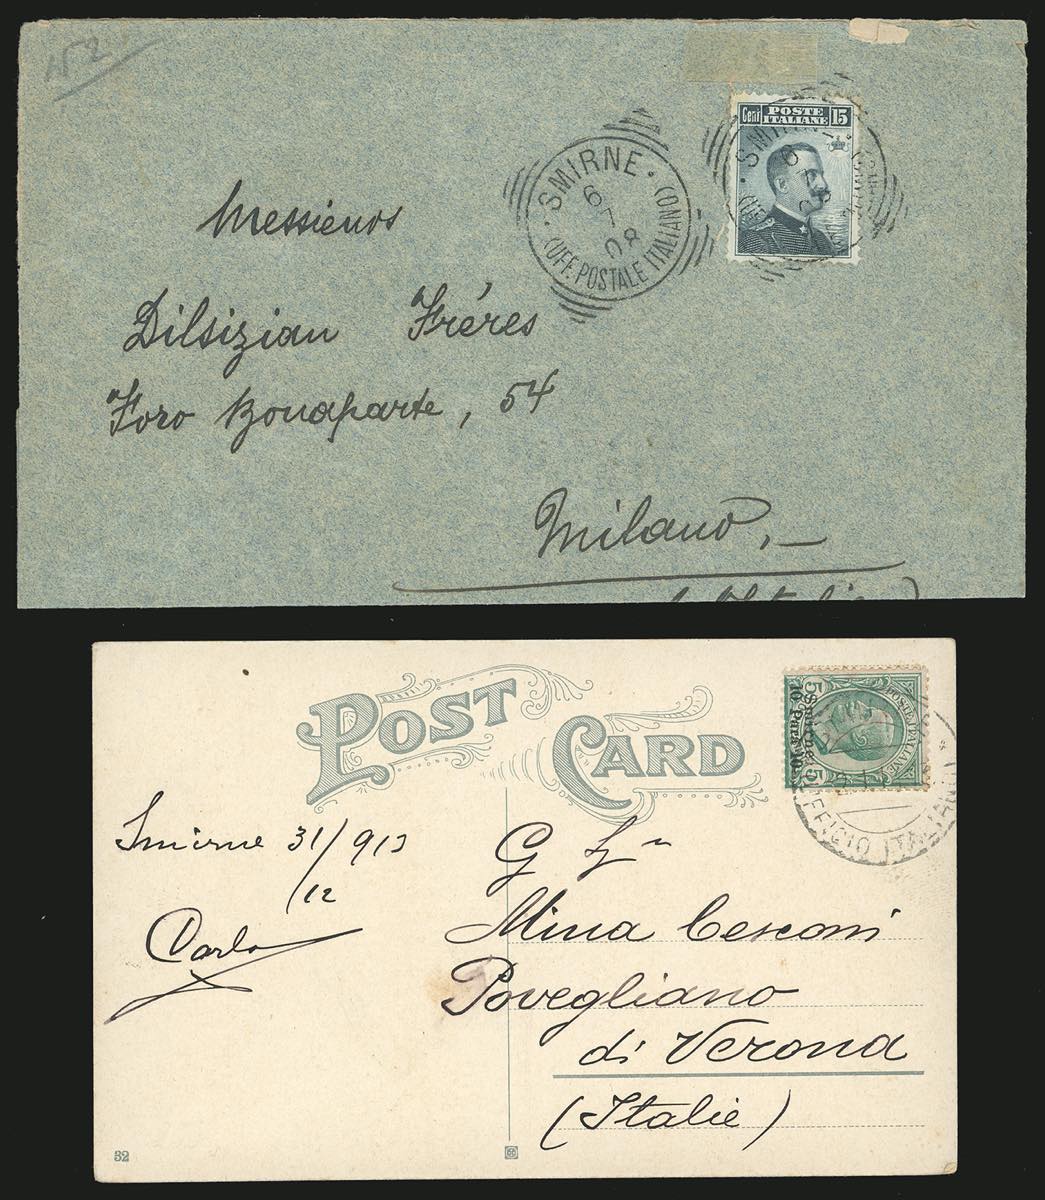 152
· SMIRNE ·
6
7
08
(UFF. POSTALE ITALIANO)
Cent POSTE ITALIANE 15
Messieurs
Dilsizian Fréres
Foro Bonaparte, 54
Milano, _
POST CARD
5 POSTE ITALIANE 5
Smirne
10 Parà 10
UFFICIO ITALIANO
Smirne 31/12 913
Carlo
Mina Cesconi
Povegliano
di Verona
(Italie)
32